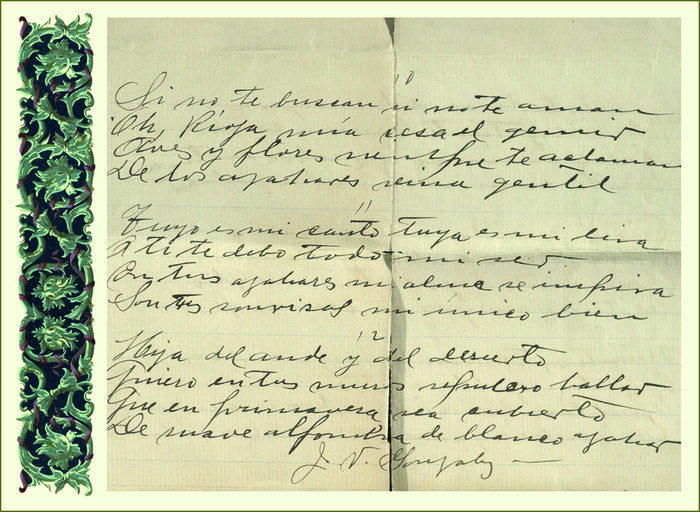 10
Si no te buscan si no te aman
Oh, Rioja mía cesa el gemir
Aves y flores siempre te aclaman
De los azahares reina gentil
11
Tuyo es mi canto tuya es mi lira
A ti te debo todo mi ser
En tus azahares mi alma se inspira
Son tus sonrisas mi único bien
12
Hija del ande y del desierto
Quiero en tus muros sepulcro hallar
Que en primavera sea cubierto
De suave alfombra de blanco azahar
J. V. González